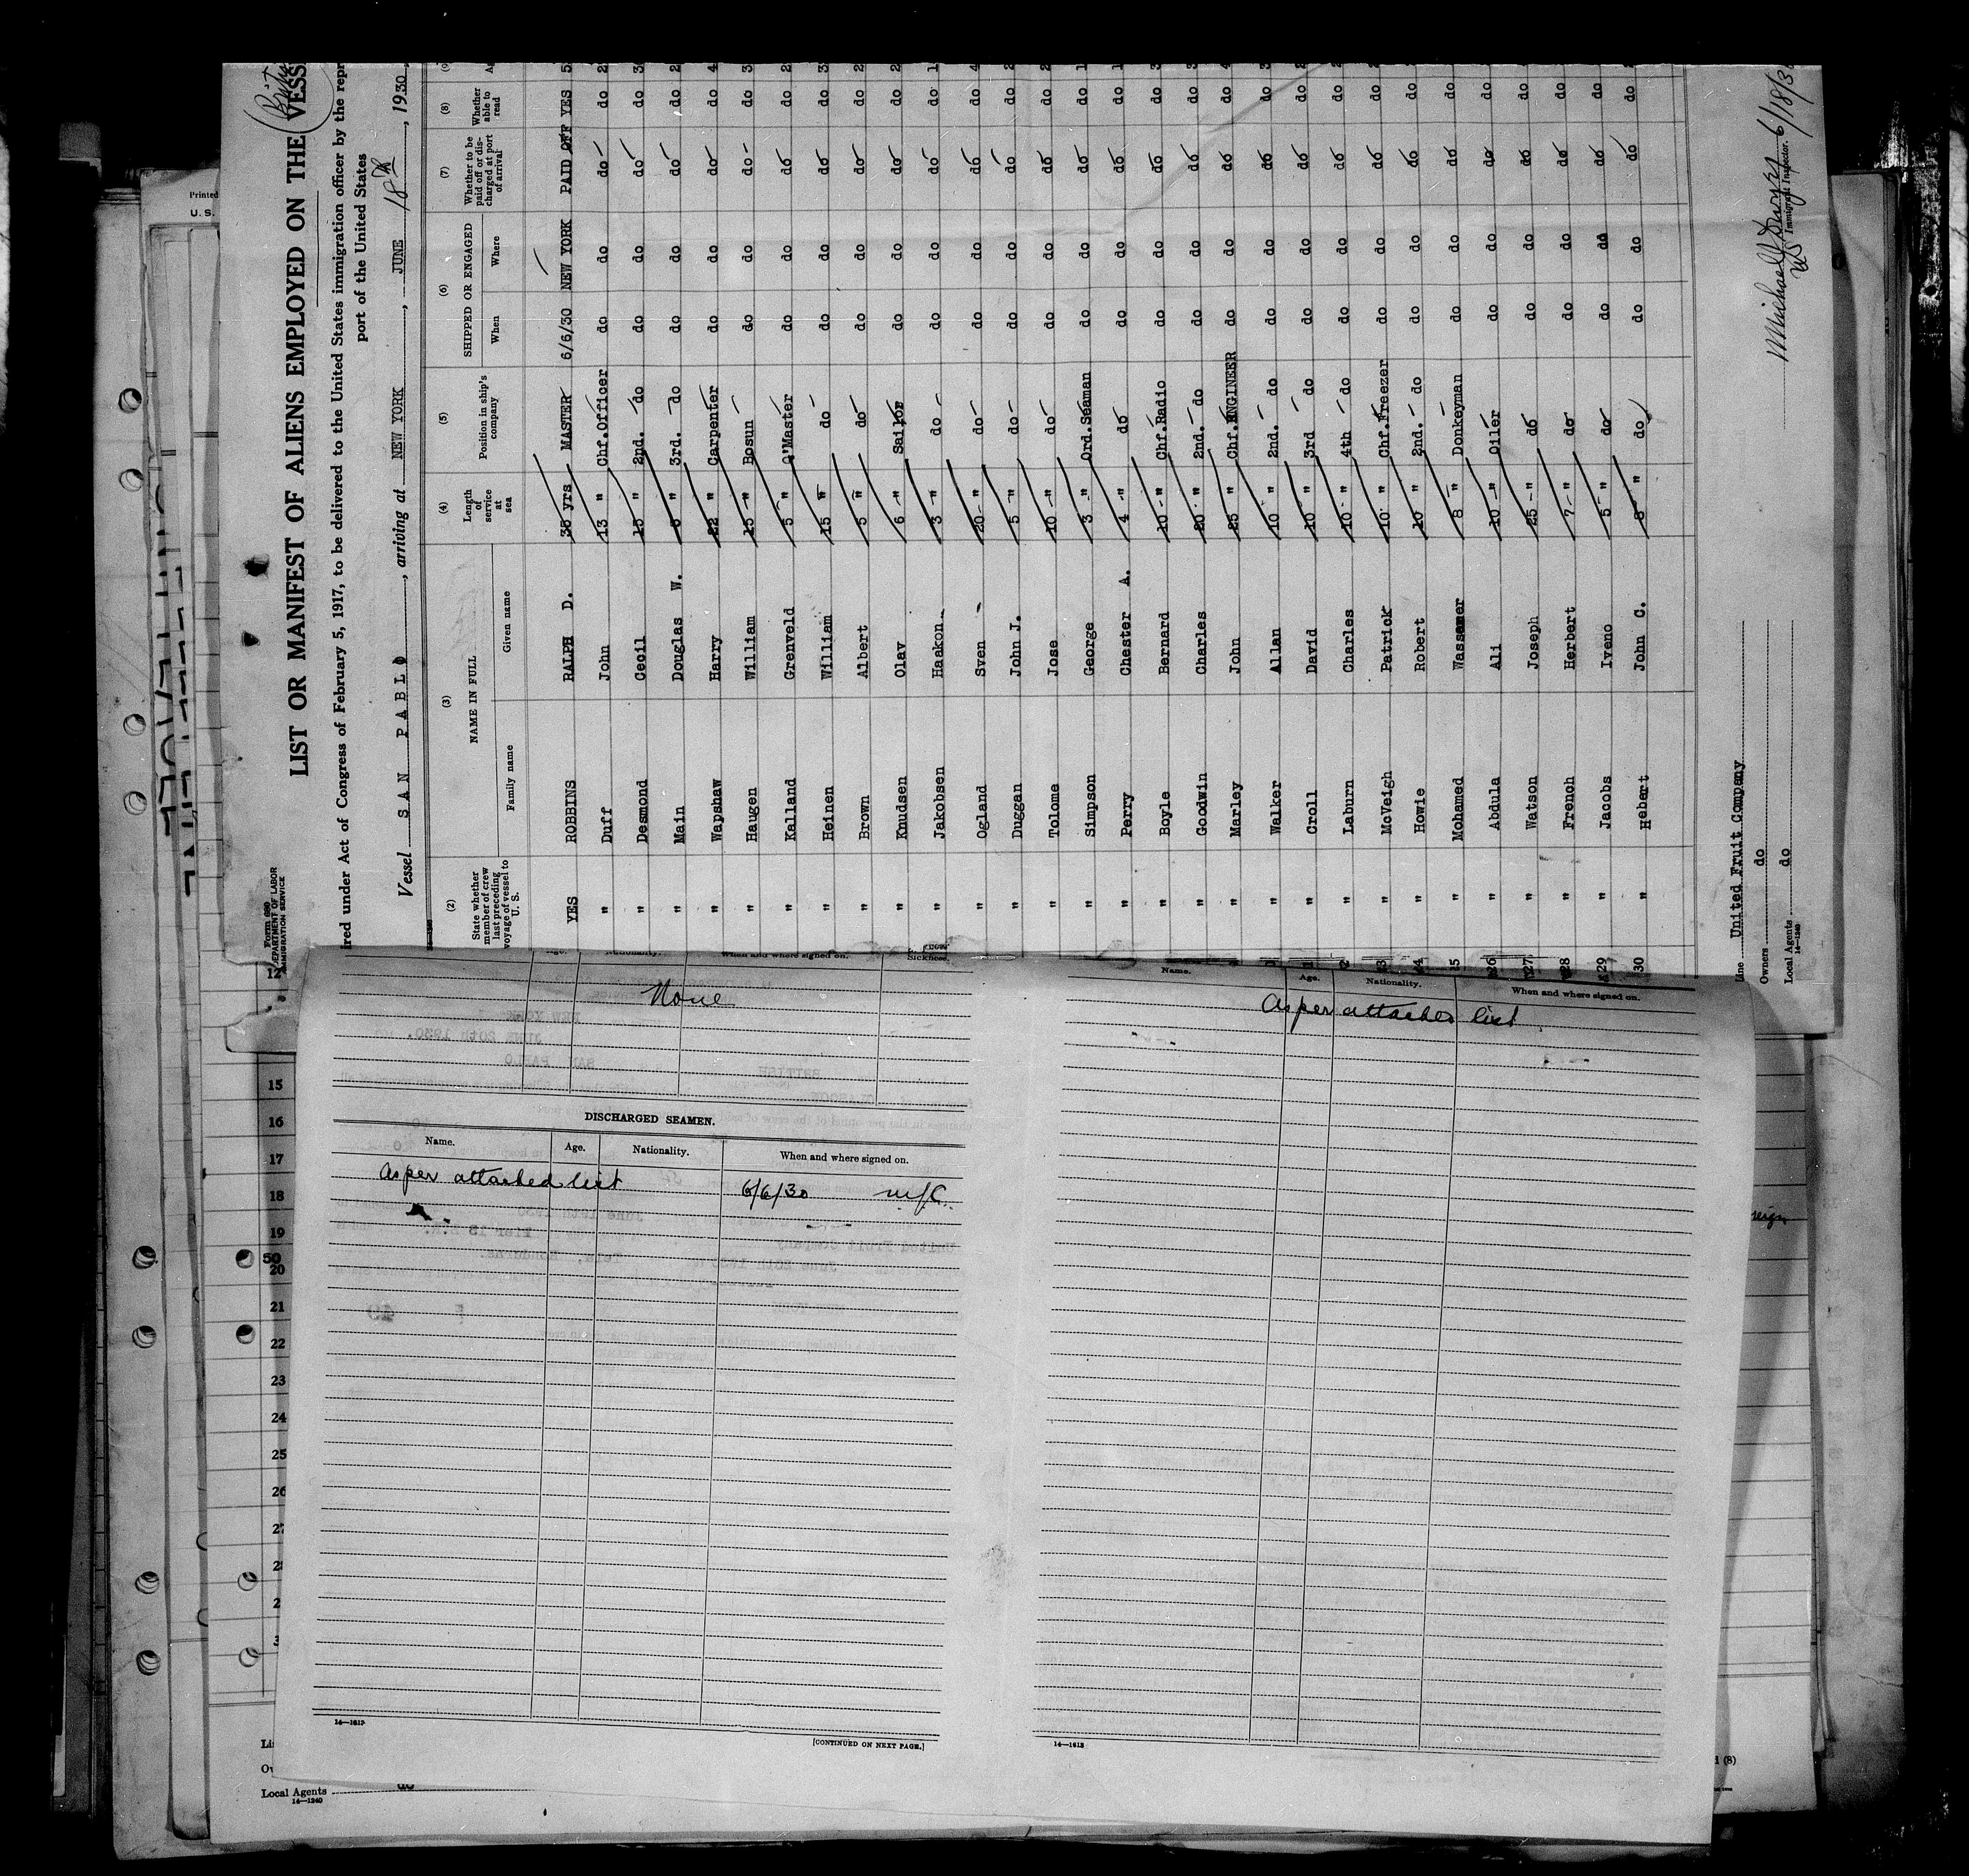 LIST OR MANIFEST OF ALIENS EMPLOYED ON THE VESS
ired under Act of Congress of February 5, 1917, to be delivered to the United States immigration officer by the repr
port of the United States
Form 680
DEPARTMENT OF LABOR
IMMIGRATION SERVICE
Vessel SAN PABLO, arriving at NEW YORK, JUNE 18th, 1930
(2) (3) (4) (5) (6) (7) (8)
State whether member of crew last preceding voyage of vessel to U. S. NAME IN FULL Length of service at sea Position in ship's company SHIPPED OR ENGAGED Whether to be paid off or discharged at port of arrival Whether able to read
Family name Given name When Where
YES ROBBINS RALPH D. 35 yrs MASTER 6/6/30 NEW YORK PAID OFF YES
" Duff John 13 " Chf.Officer do do do do
" Desmond Cecil 15 " 2nd. do do do do do
" Main Douglas W. " 3rd. do do do do do
" Wapshaw Harry 22 " Carpenter do do do do
" Haugen William 15 " Bosun do do do do
" Kalland Grenveld 5 " Q'Master do do do do
" Heinen William 15 " do do do do do
" Brown Albert 5 " do do do do do
" Knudsen Olav 6 " Sailor do do do do
" Jakobsen Haakon 3 " do do do do do
" Ogland Sven 20 " do do do do do
" Duggan John J. 5 " do do do do do
" Tolome Jose 10 " do do do do do
" Simpson George 3 " Ord.Seaman do do do do
" Perry Chester A. 4 " do do do do do
" Boyle Bernard 10 " Chf.Radio do do do do
" Goodwin Charles 20 " 2nd. do do do do do
" Marley John 25 " Chf.ENGINEER do do do do
" Walker Allan 10 " 2nd. do do do do do
" Croll David 10 " 3rd do do do do do
" Laburn Charles 10 " 4th do do do do do
" McVeigh Patrick 10 " Chf.Freezer do do do do
" Howie Robert 10 " 2nd. do do do do do
" Mohamed Wassemer 8 " Donkeyman do do do do
26 " Abdula Ali 10 " Oiler do do do do
27 " Watson Joseph 25 " do do do do do
28 " French Herbert 7 " do do do do do
29 " Jacobs Iveno 5 " do do do do do
30 " Hebert John C. 8 " do do do do do
Line United Fruit Company
Owners do
Local Agents do
14—1240
Immigrant Inspector. 6/18/30
Printed
U. S.
When and where signed on.
Sickness.
None
DISCHARGED SEAMEN.
Name. Age. Nationality. When and where signed on.
As per attached list 6/6/30
14—1613
[CONTINUED ON NEXT PAGE.]
Name. Age. Nationality. When and where signed on.
As per attached list
14—1613
12
15
16
17
18
19
50
20
21
22
23
24
25
26
Local Agents
14—1240